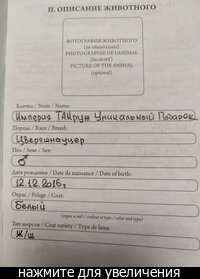 II. ОПИСАНИЕ ЖИВОТНОГО
ФОТОГРАФИЯ ЖИВОТНОГО
(не обязательно)
PHOTOGRAPHIE DE L'ANIMAL
(facultatif)
PICTURE OF THE ANIMAL
(optional)
Кличка / Nom / Name:
Империя ТАйруш Уникальный Подарок
Порода / Race / Breed:
Цвергшнауцер
Пол / Sexe / Sex:
♂
Дата рождения / Date de naissance / Date of birth:
12.12.2016г
Окрас / Pelage / Coat:
Белый
(окрас и вид / couleur et type / color and type)
Тип шерсти / Coat variety / Type de laine
ж/ш
нажмите для увеличения